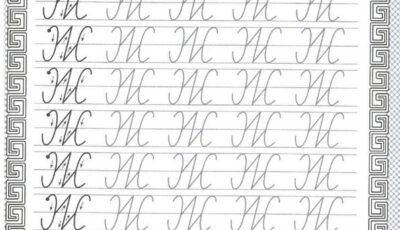 Ж Ж Ж Ж Ж
Ж Ж Ж Ж Ж
Ж Ж Ж Ж Ж
Ж Ж Ж Ж Ж
Ж Ж Ж Ж Ж
Ж Ж Ж Ж Ж